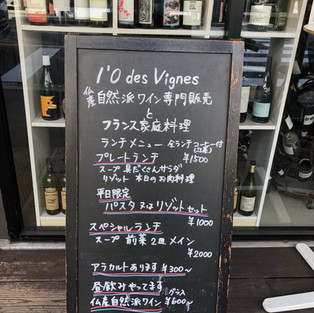 l'O des Vignes
仏産自然派ワイン専門販売
と
フランス家庭料理
ランチメニュー 全ランチコーヒー付
プレートランチ ¥1500
スープ 具だくさんサラダ
リゾット 本日のお肉料理
平日限定
パスタ 又はリゾットセット
¥1000
スペシャルランチ
スープ 前菜2皿 メイン
¥2000
アラカルトあります ¥300〜
昼飲みやってます
グラス
仏産自然派ワイン ¥600〜